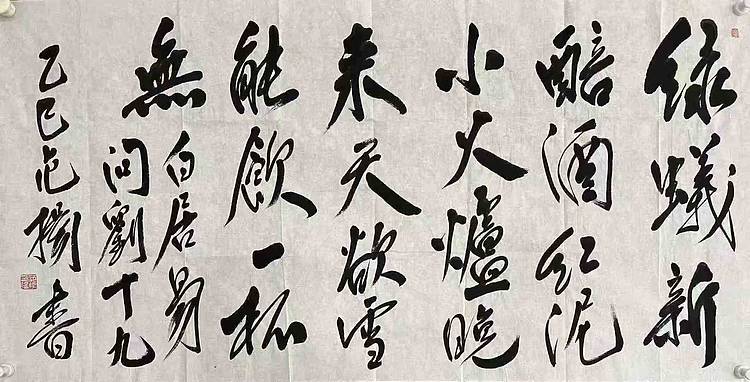 緑蟻新
醅酒紅泥
小火爐晚
来天欲雪
能飲一杯
無
白居易
問劉十九
乙巳范揚書